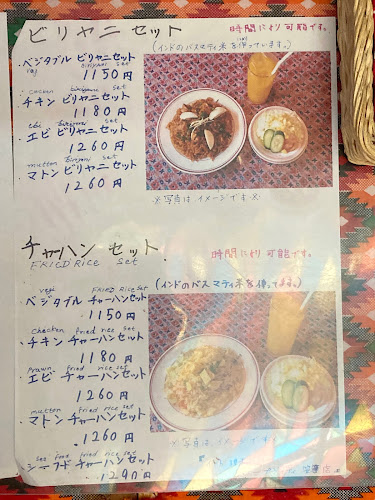 ビリヤニ セット
時間により 可能です。
(インドのバスマティ米を使っています。)
・ベジタブル ビリヤニセット
biriyani set
1150円
チキン ビリヤニセット
1180円
ebi biriyani set
・エビ ビリヤニセット
1260円
mutton biriyani set
・マトン ビリヤニセット
1260円
※写真は イメージです※
チャーハン セット
FRIED Rice Set
時間により 可能です。
(インドのバスマティ米を使ってます。)
vegi FRIED Rice Set
・ベジタブル チャーハンセット
1150円
checken fried rice set
・チキン チャーハンセット
1180円
prawn fried rice set
・エビ チャーハンセット
1260円
mutton fried rice set
・マトン チャーハンセット
1260円
see food fried rice set
・シーフード チャーハンセット
1290円
※写真は イメージです